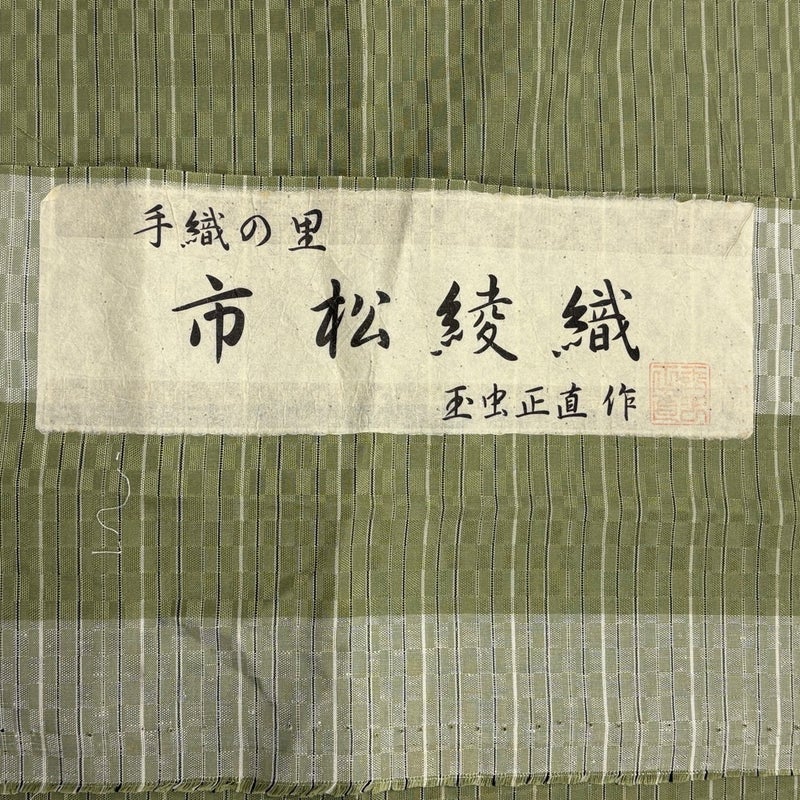 手織の里
市松綾織
玉虫正直作